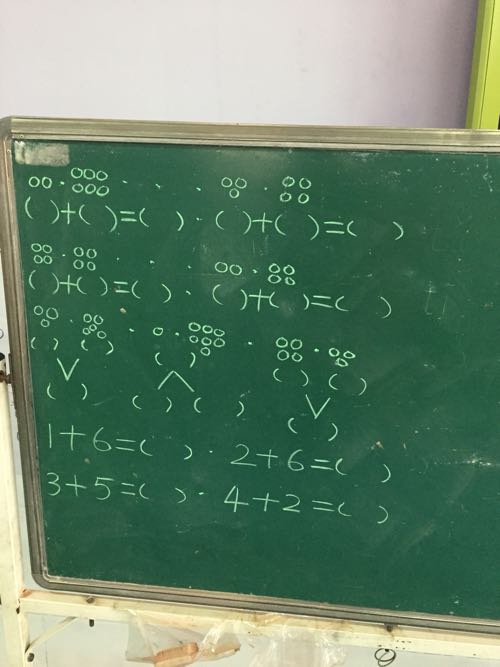 ( )+( )=( ) · ( )+( )=( )
( )+( )=( ) · ( )+( )=( )
( ) ( ) ( ) ( ) ( )
( ) ( ) ( ) ( )
1+6=( ) · 2+6=( )
3+5=( ) · 4+2=( )